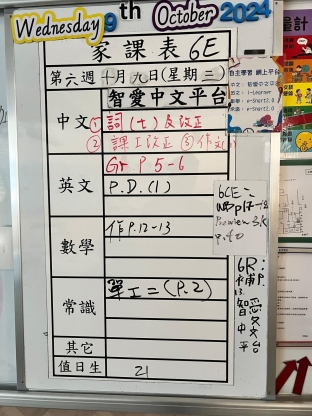 Wednesday 9th October 2024
家課表 6E
第六週 十月九日(星期三)
智愛中文平台
中文 ① 詞(七)及改正
② 課工改正 ③ 作文
Gr P.5-6
英文 P.D.(1)
數學 作P.12-13
常識 單工二(P.2)
其它
值日生 21
6CE:
6R:
補P.
13
智愛
中文
平台
自主學習 網上平台